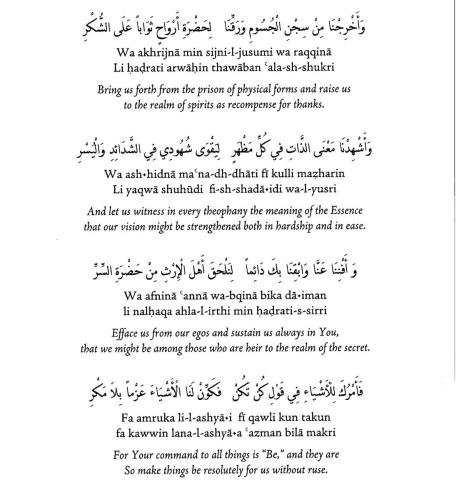 وَأَخْرِجْنَا مِنْ سِجْنِ الْجُسُومِ وَرَقِّنَا لِحَضْرَةِ أَرْوَاحٍ ثَوَاباً عَلَى الشُّكْرِ
Wa akhrijnā min sijni-l-jusumi wa raqqinā
Li ḥaḍrati arwāḥin thawāban ʿala-sh-shukri
Bring us forth from the prison of physical forms and raise us
to the realm of spirits as recompense for thanks.
وَأَشْهِدْنَا مَعْنَى الذَّاتِ فِي كُلِّ مَظْهَرٍ لِيَقْوَى شُهُودِي فِي الشَّدَائِدِ وَالْيُسْرِ
Wa ash•hidnā maʿna-dh-dhāti fī kulli maẓharin
Li yaqwā shuhūdi fi-sh-shadā•idi wa-l-yusri
And let us witness in every theophany the meaning of the Essence
that our vision might be strengthened both in hardship and in ease.
وَ أَفْنِنَا عَنَّا وَابْقِنَا بِكَ دَائِماً لِنَلْحَقَ أَهْلَ الْإِرْثِ مِنْ حَضْرَةِ السِّرِّ
Wa afninā ʿannā wa-bqinā bika dā•iman
li nalḥaqa ahla-l-irthi min ḥaḍrati-s-sirri
Efface us from our egos and sustain us always in You,
that we might be among those who are heir to the realm of the secret.
فَأَمْرُكَ لِلْأَشْيَاءِ فِي قَوْلِ كُنْ تَكُنْ فَكَوِّنْ لَنَا الْأَشْيَاءَ عَزْماً بِلَا مَكْرِ
Fa amruka li-l-ashyā•i fī qawli kun takun
fa kawwin lana-l-ashyā•a ʿazman bilā makri
For Your command to all things is “Be,” and they are
So make things be resolutely for us without ruse.